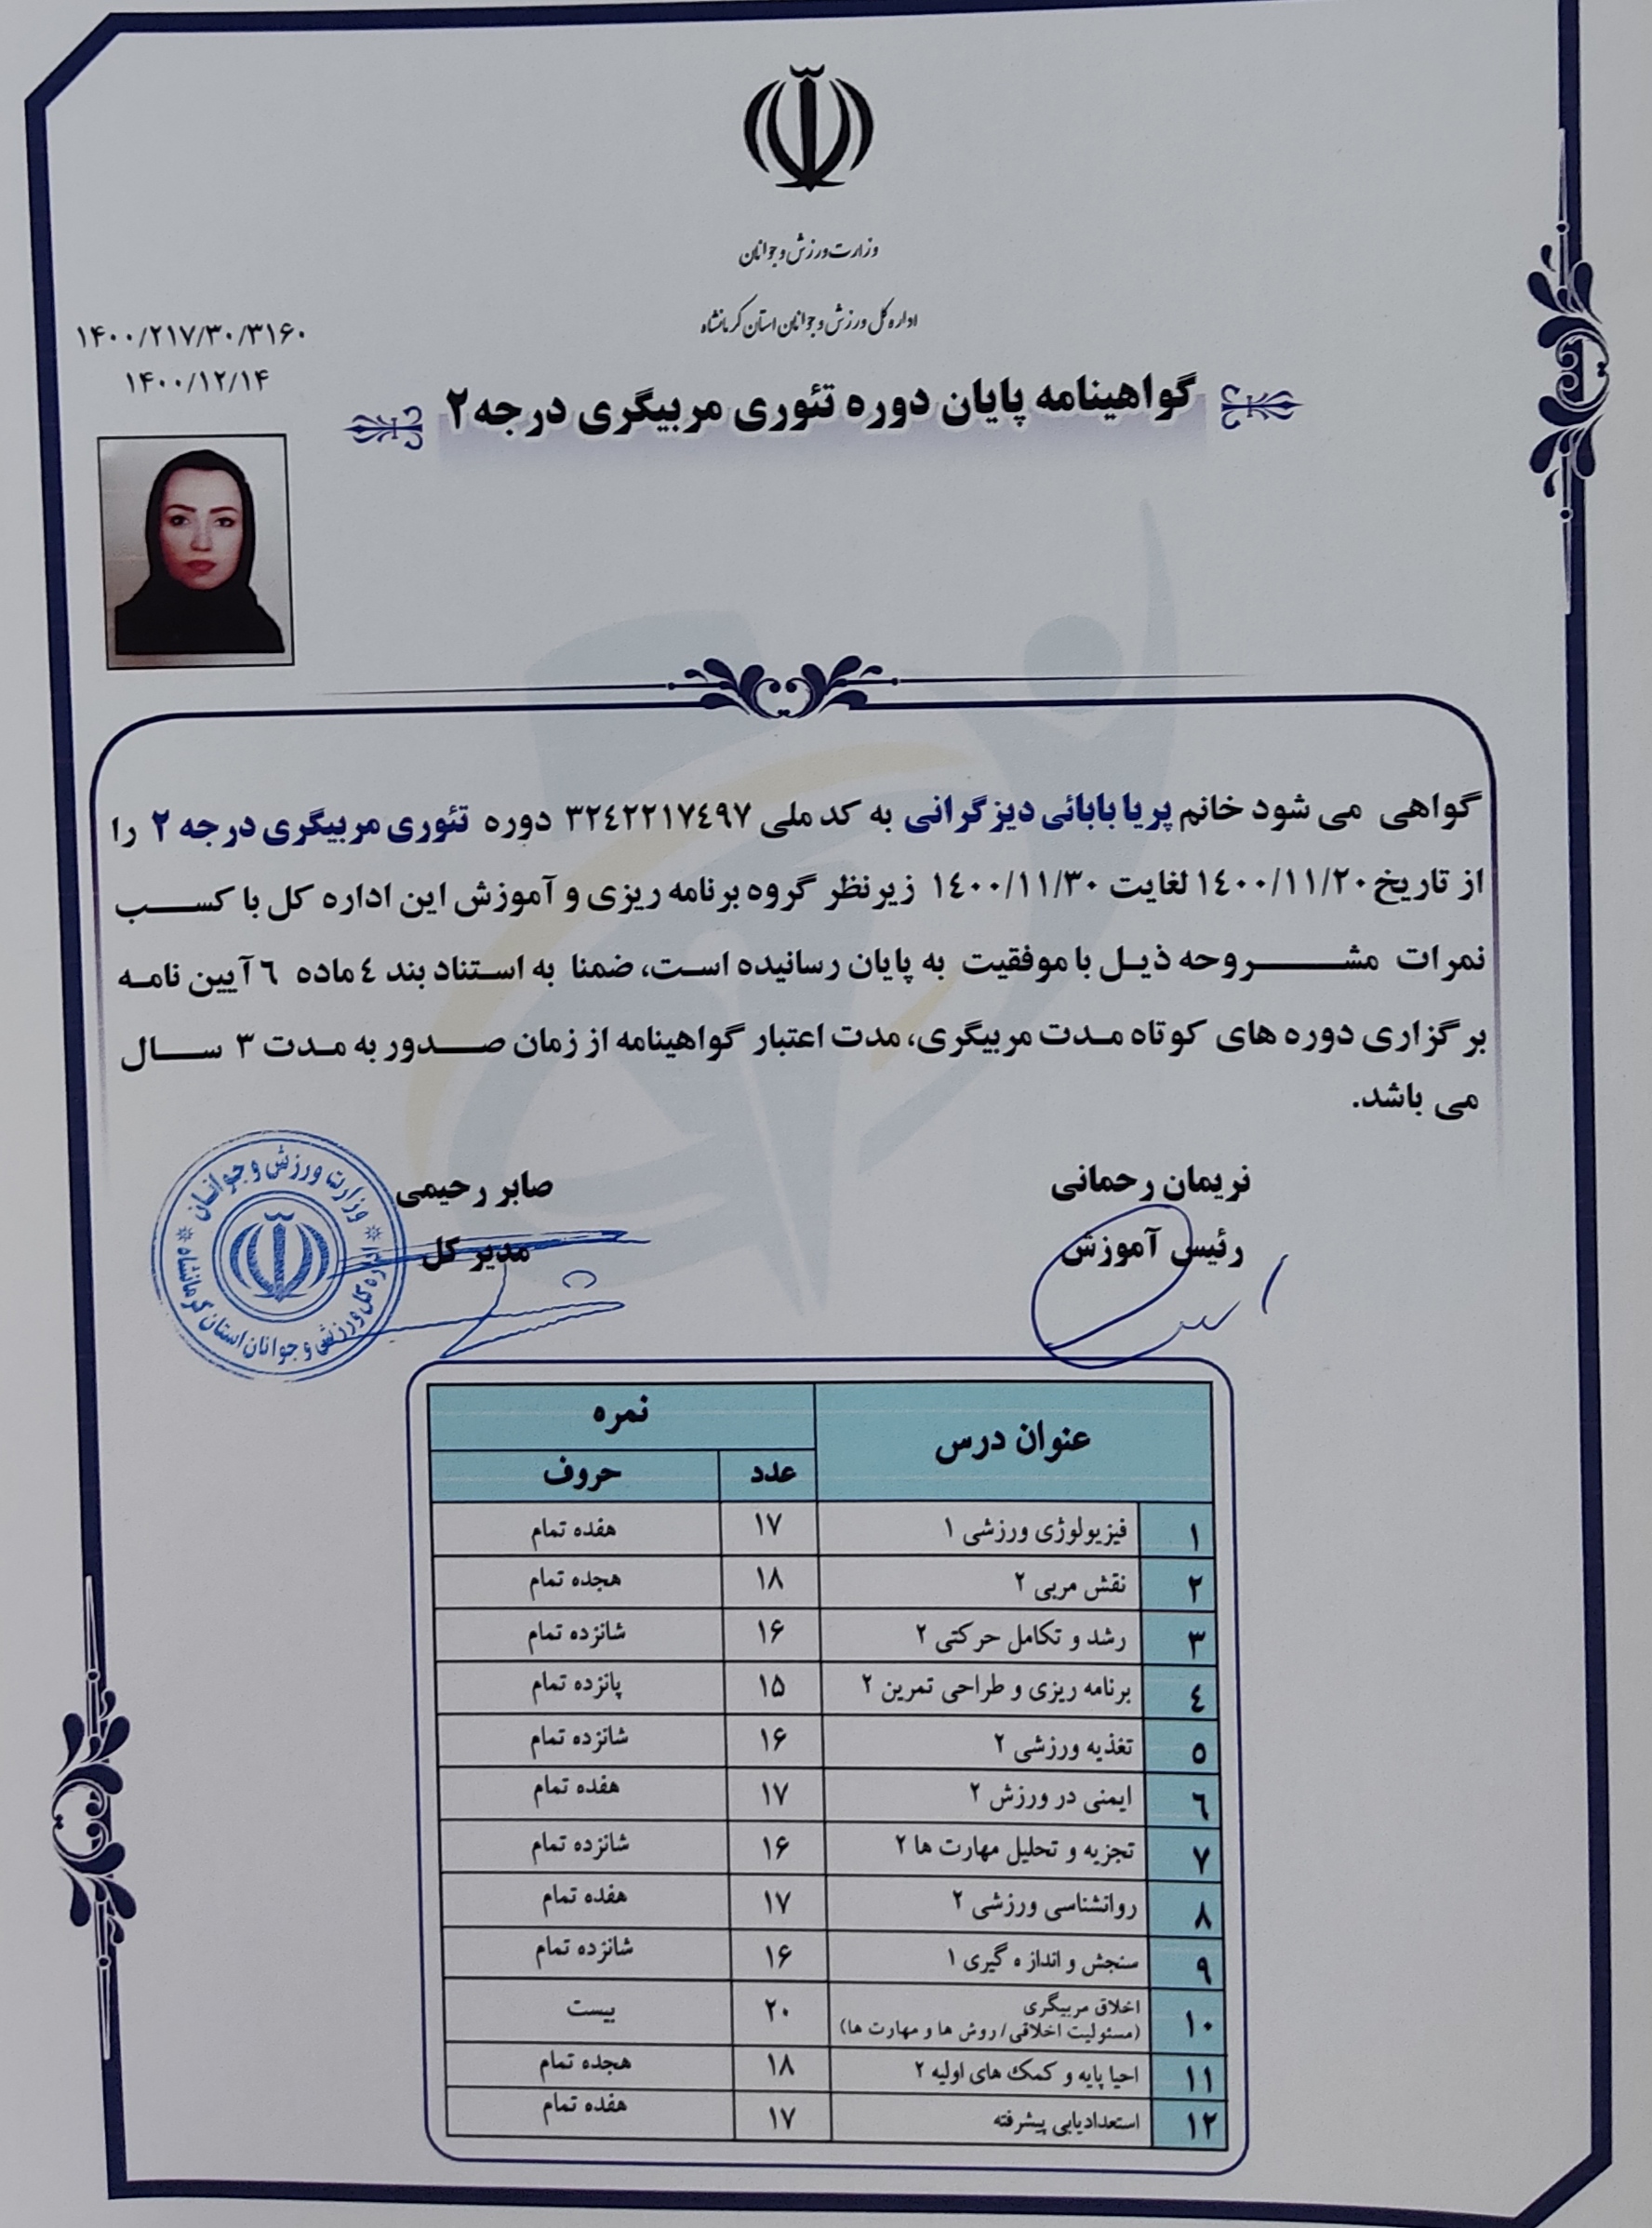 وزارت ورزش و جوانان
اداره کل ورزش و جوانان استان کرمانشاه
۱۴۰۰/۲۱۷/۳۰/۳۱۶۰
۱۴۰۰/۱۲/۱۴
گواهینامه پایان دوره تئوری مربیگری درجه ۲
گواهی می شود خانم پریا بابائی دیزگرانی به کد ملی ۳۲٤۲۲۱۷٤۹۷ دوره تئوری مربیگری درجه ۲ را
از تاریخ ۱٤۰۰/۱۱/۲۰ لغایت ۱٤۰۰/۱۱/۳۰ زیرنظر گروه برنامه ریزی و آموزش این اداره کل با کسب
نمرات مشروحه ذیل با موفقیت به پایان رسانیده است، ضمنا به استناد بند ٤ ماده ٦ آیین نامه
برگزاری دوره های کوتاه مدت مربیگری، مدت اعتبار گواهینامه از زمان صدور به مدت ۳ سال
می باشد.
نریمان رحمانی
رئیس آموزش
صابر رحیمی
مدیر کل
وزارت ورزش و جوانان
اداره کل ورزش و جوانان استان کرمانشاه
عنوان درس نمره
عدد حروف
۱ فیزیولوژی ورزشی ۱ ۱۷ هفده تمام
۲ نقش مربی ۲ ۱۸ هجده تمام
۳ رشد و تکامل حرکتی ۲ ۱۶ شانزده تمام
٤ برنامه ریزی و طراحی تمرین ۲ ۱۵ پانزده تمام
۵ تغذیه ورزشی ۲ ۱۶ شانزده تمام
٦ ایمنی در ورزش ۲ ۱۷ هفده تمام
۷ تجزیه و تحلیل مهارت ها ۲ ۱۶ شانزده تمام
۸ روانشناسی ورزشی ۲ ۱۷ هفده تمام
۹ سنجش و اندازه گیری ۱ ۱۶ شانزده تمام
۱۰ اخلاق مربیگری ۲۰ بیست
(مسئولیت اخلاقی/ روش ها و مهارت ها)
۱۱ احیا پایه و کمک های اولیه ۲ ۱۸ هجده تمام
۱۲ استعدادیابی پیشرفته ۱۷ هفده تمام